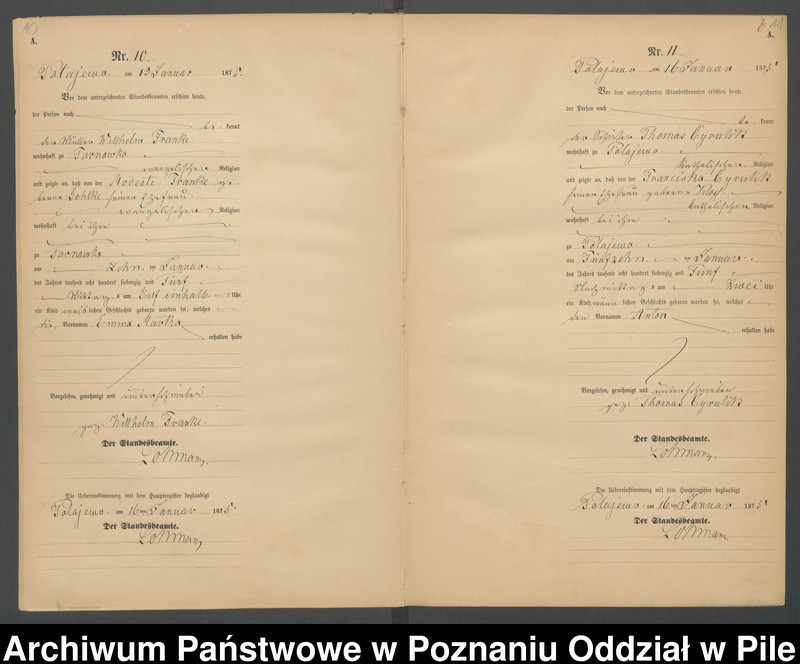 10
A.
Nr. 10.
Polajewo am 13 Januar 1875.
Vor dem unterzeichneten Standesbeamten erschien heute,
der Person nach
be kannt
der Müller Willhelm Franke
wohnhaft zu Tarnowko
evangelischer Religion
und zeigte an, daß von der Modeste Franke ge-
borene Gohlke seiner Ehefrau
evangelischer Religion
wohnhaft bei ihm
zu Tarnowko
am Zehn ten Januar
des Jahres tausend acht hundert siebenzig und Fünf
Mittags um Elf einhalb Uhr
ein Kind weiblichen Geschlechts geboren worden sei, welches
die Vornamen Emma
erhalten habe
Vorgelesen, genehmigt und unterschrieben
gez. Willhelm Franke.
Der Standesbeamte.
Die Uebereinstimmung mit dem Hauptregister beglaubigt
Polajewo am 16ten Januar 1875
Der Standesbeamte.
11
A.
Nr. 11
Polajewo am 16 Januar 1875
Vor dem unterzeichneten Standesbeamten erschien heute,
der Person nach
be kannt
der Thomas Cyrulik
wohnhaft zu Polajewo
katholischer Religion
und zeigte an, daß von der Franciska Cyrulik
seiner Ehefrau geborene
katholischer Religion
wohnhaft bei ihm
zu Polajewo
am Fünfzehn ten Januar
des Jahres tausend acht hundert siebenzig und Fünf
Nachmittags um Zwei Uhr
ein Kind männlichen Geschlechts geboren worden sei, welches
den Vornamen Anton
erhalten habe
Vorgelesen, genehmigt und unterschrieben
gez. Thomas Cyrulik
Der Standesbeamte.
Die Uebereinstimmung mit dem Hauptregister beglaubigt
Polajewo am 16ten Januar 1875
Der Standesbeamte.
Archiwum Państwowe w Poznaniu Oddział w Pile